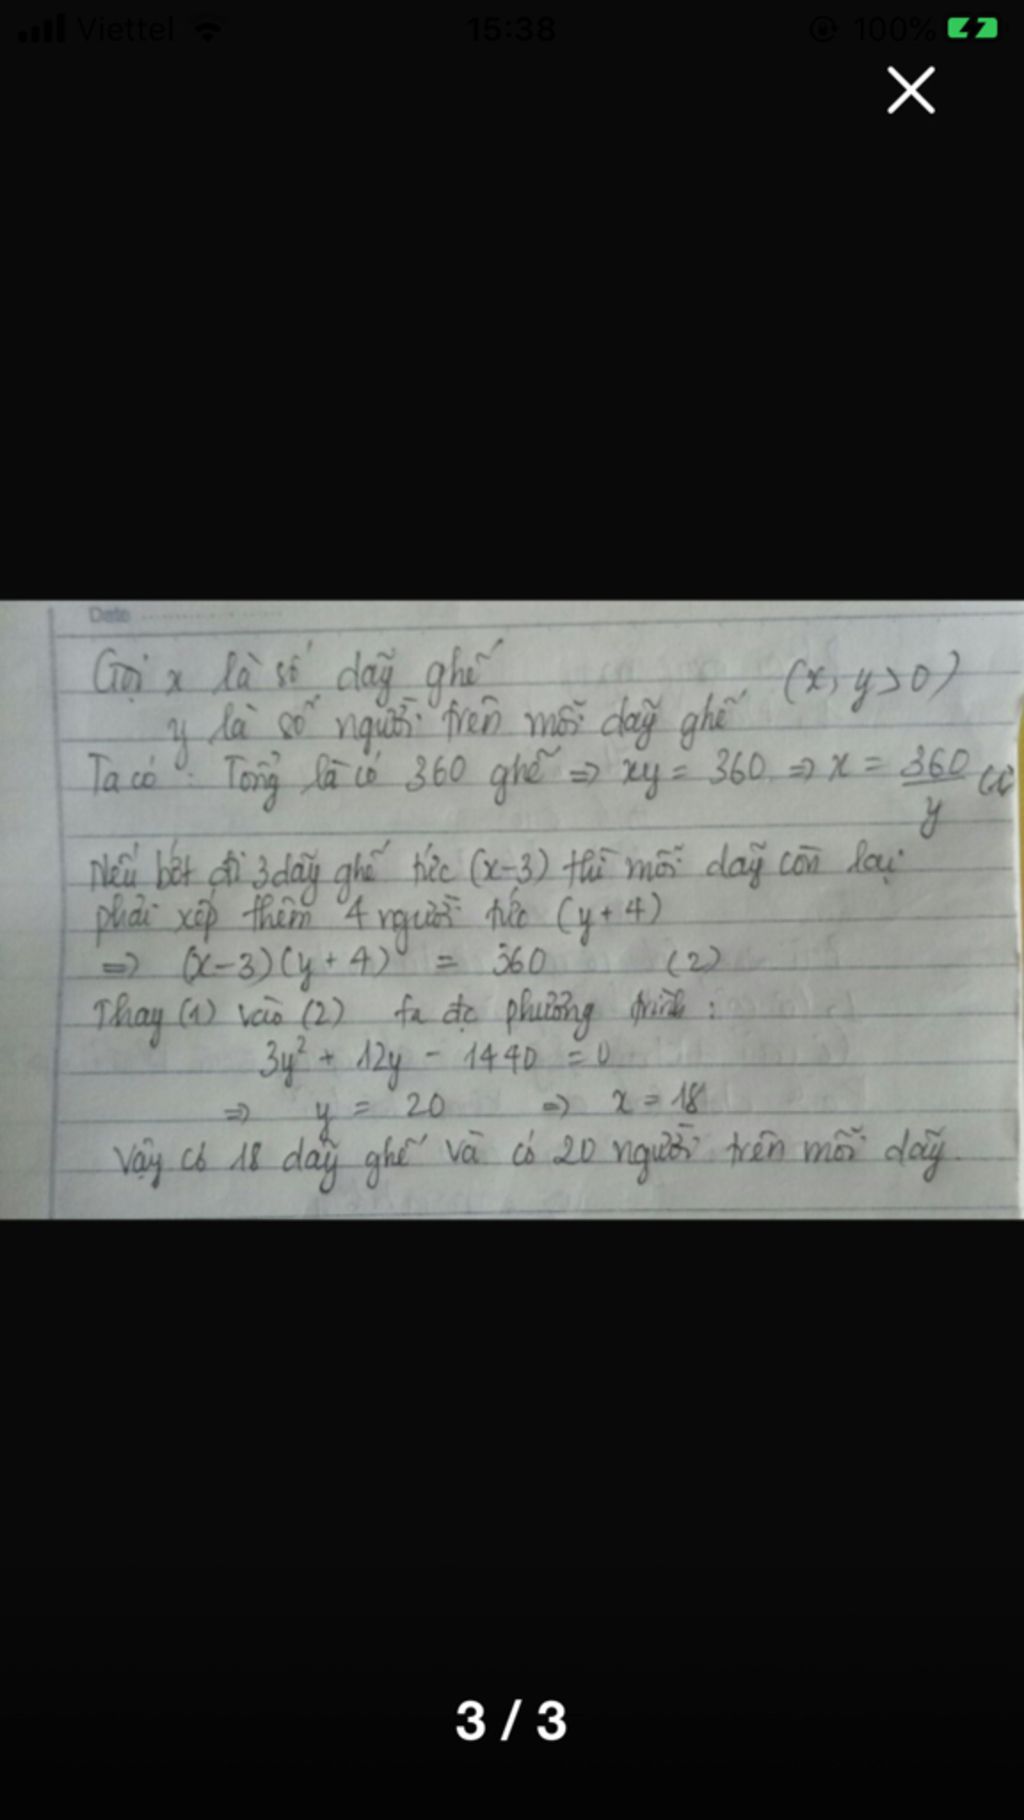 Viettel 15:38 100%
Date
Gọi x là số dãy ghế (x, y > 0)
y là số người trên mỗi dãy ghế
Ta có : Tổng là có 360 ghế => xy = 360 => x = 360/y (1)
Nếu bớt đi 3 dãy ghế tức (x-3) thì mỗi dãy còn lại
phải xếp thêm 4 người tức (y + 4)
=> (x-3)(y + 4) = 360 (2)
Thay (1) vào (2) ta đc phương trình :
3y² + 12y - 1440 = 0
=> y = 20 => x = 18
Vậy có 18 dãy ghế và có 20 người trên mỗi dãy.
3 / 3